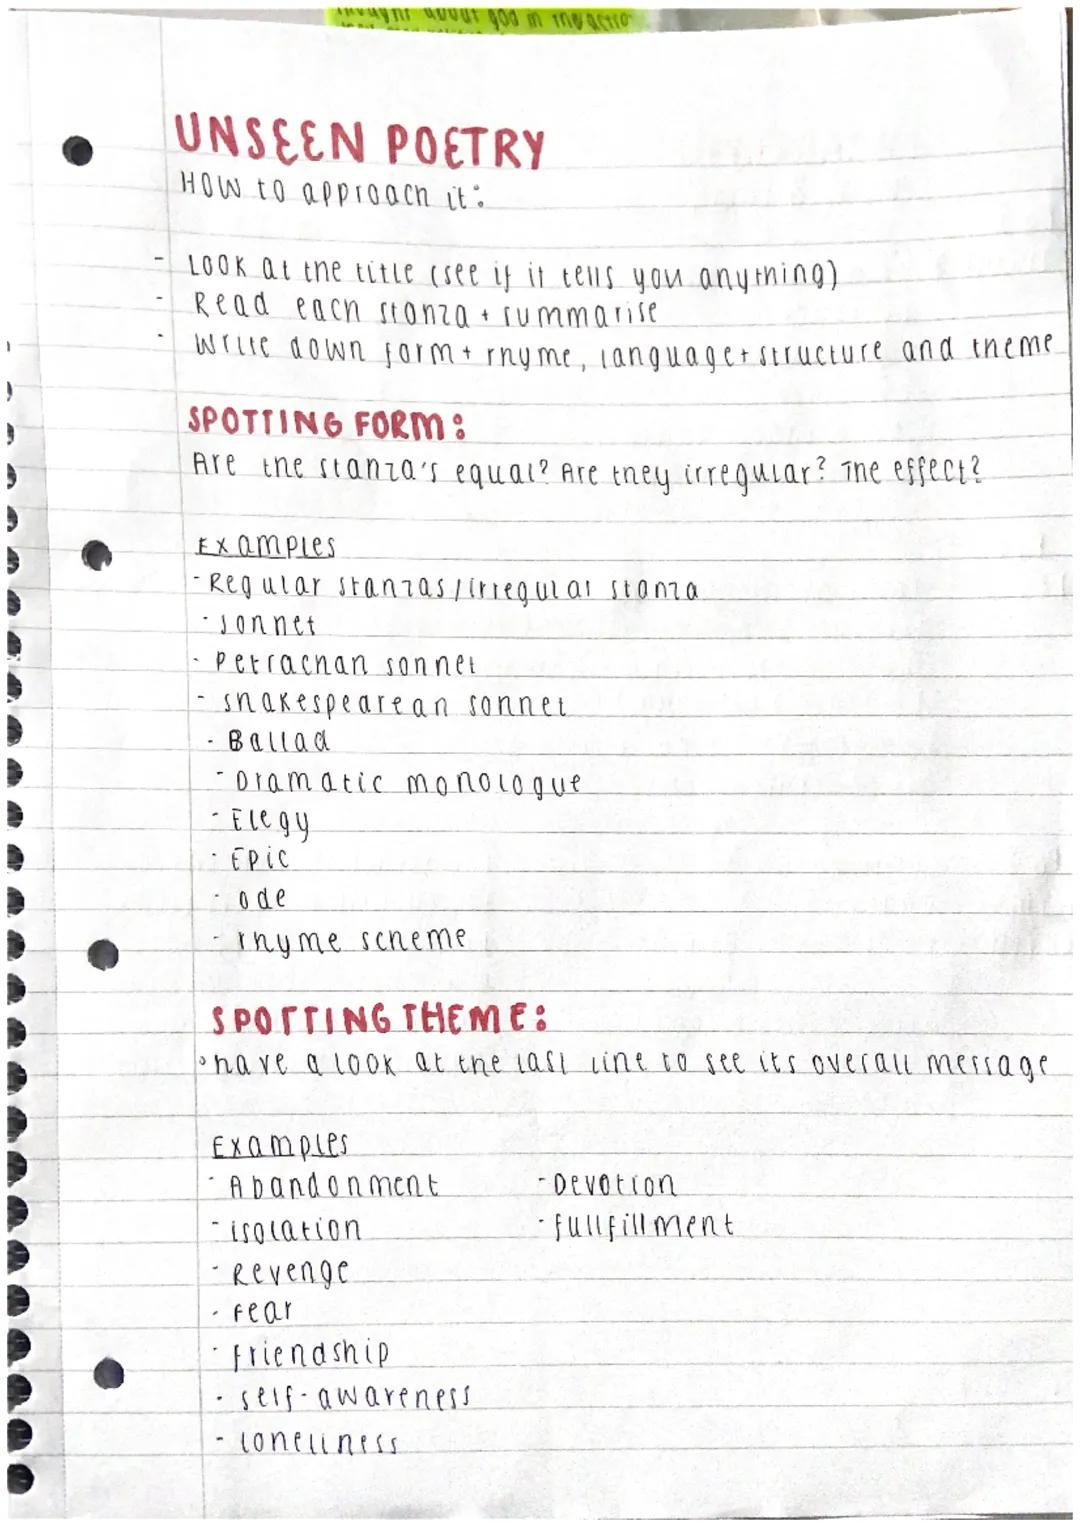 thought about god in the actio
UNSEEN POETRY
HOW to approach it:
- LOOK at the title (see if it tells you anything)
- Read each stanza + summarise
- Write down form + rhyme, language + structure and theme
SPOTTING FORM:
Are the stanza's equal? Are they irregular? The effect?
Examples
- Regular stanzas / irregular stanza
- sonnet
- Petrachan sonnet
- shakespearean sonnet
- Ballad
- Dramatic monologue
- Elegy
- Epic
- ode
- rhyme scheme
SPOTTING THEME:
• have a look at the last line to see its overall message
Examples
- Abandonment
- isolation
- Revenge
- fear
- friendship
- self-awareness
- loneliness
- Devotion
- fullfillment